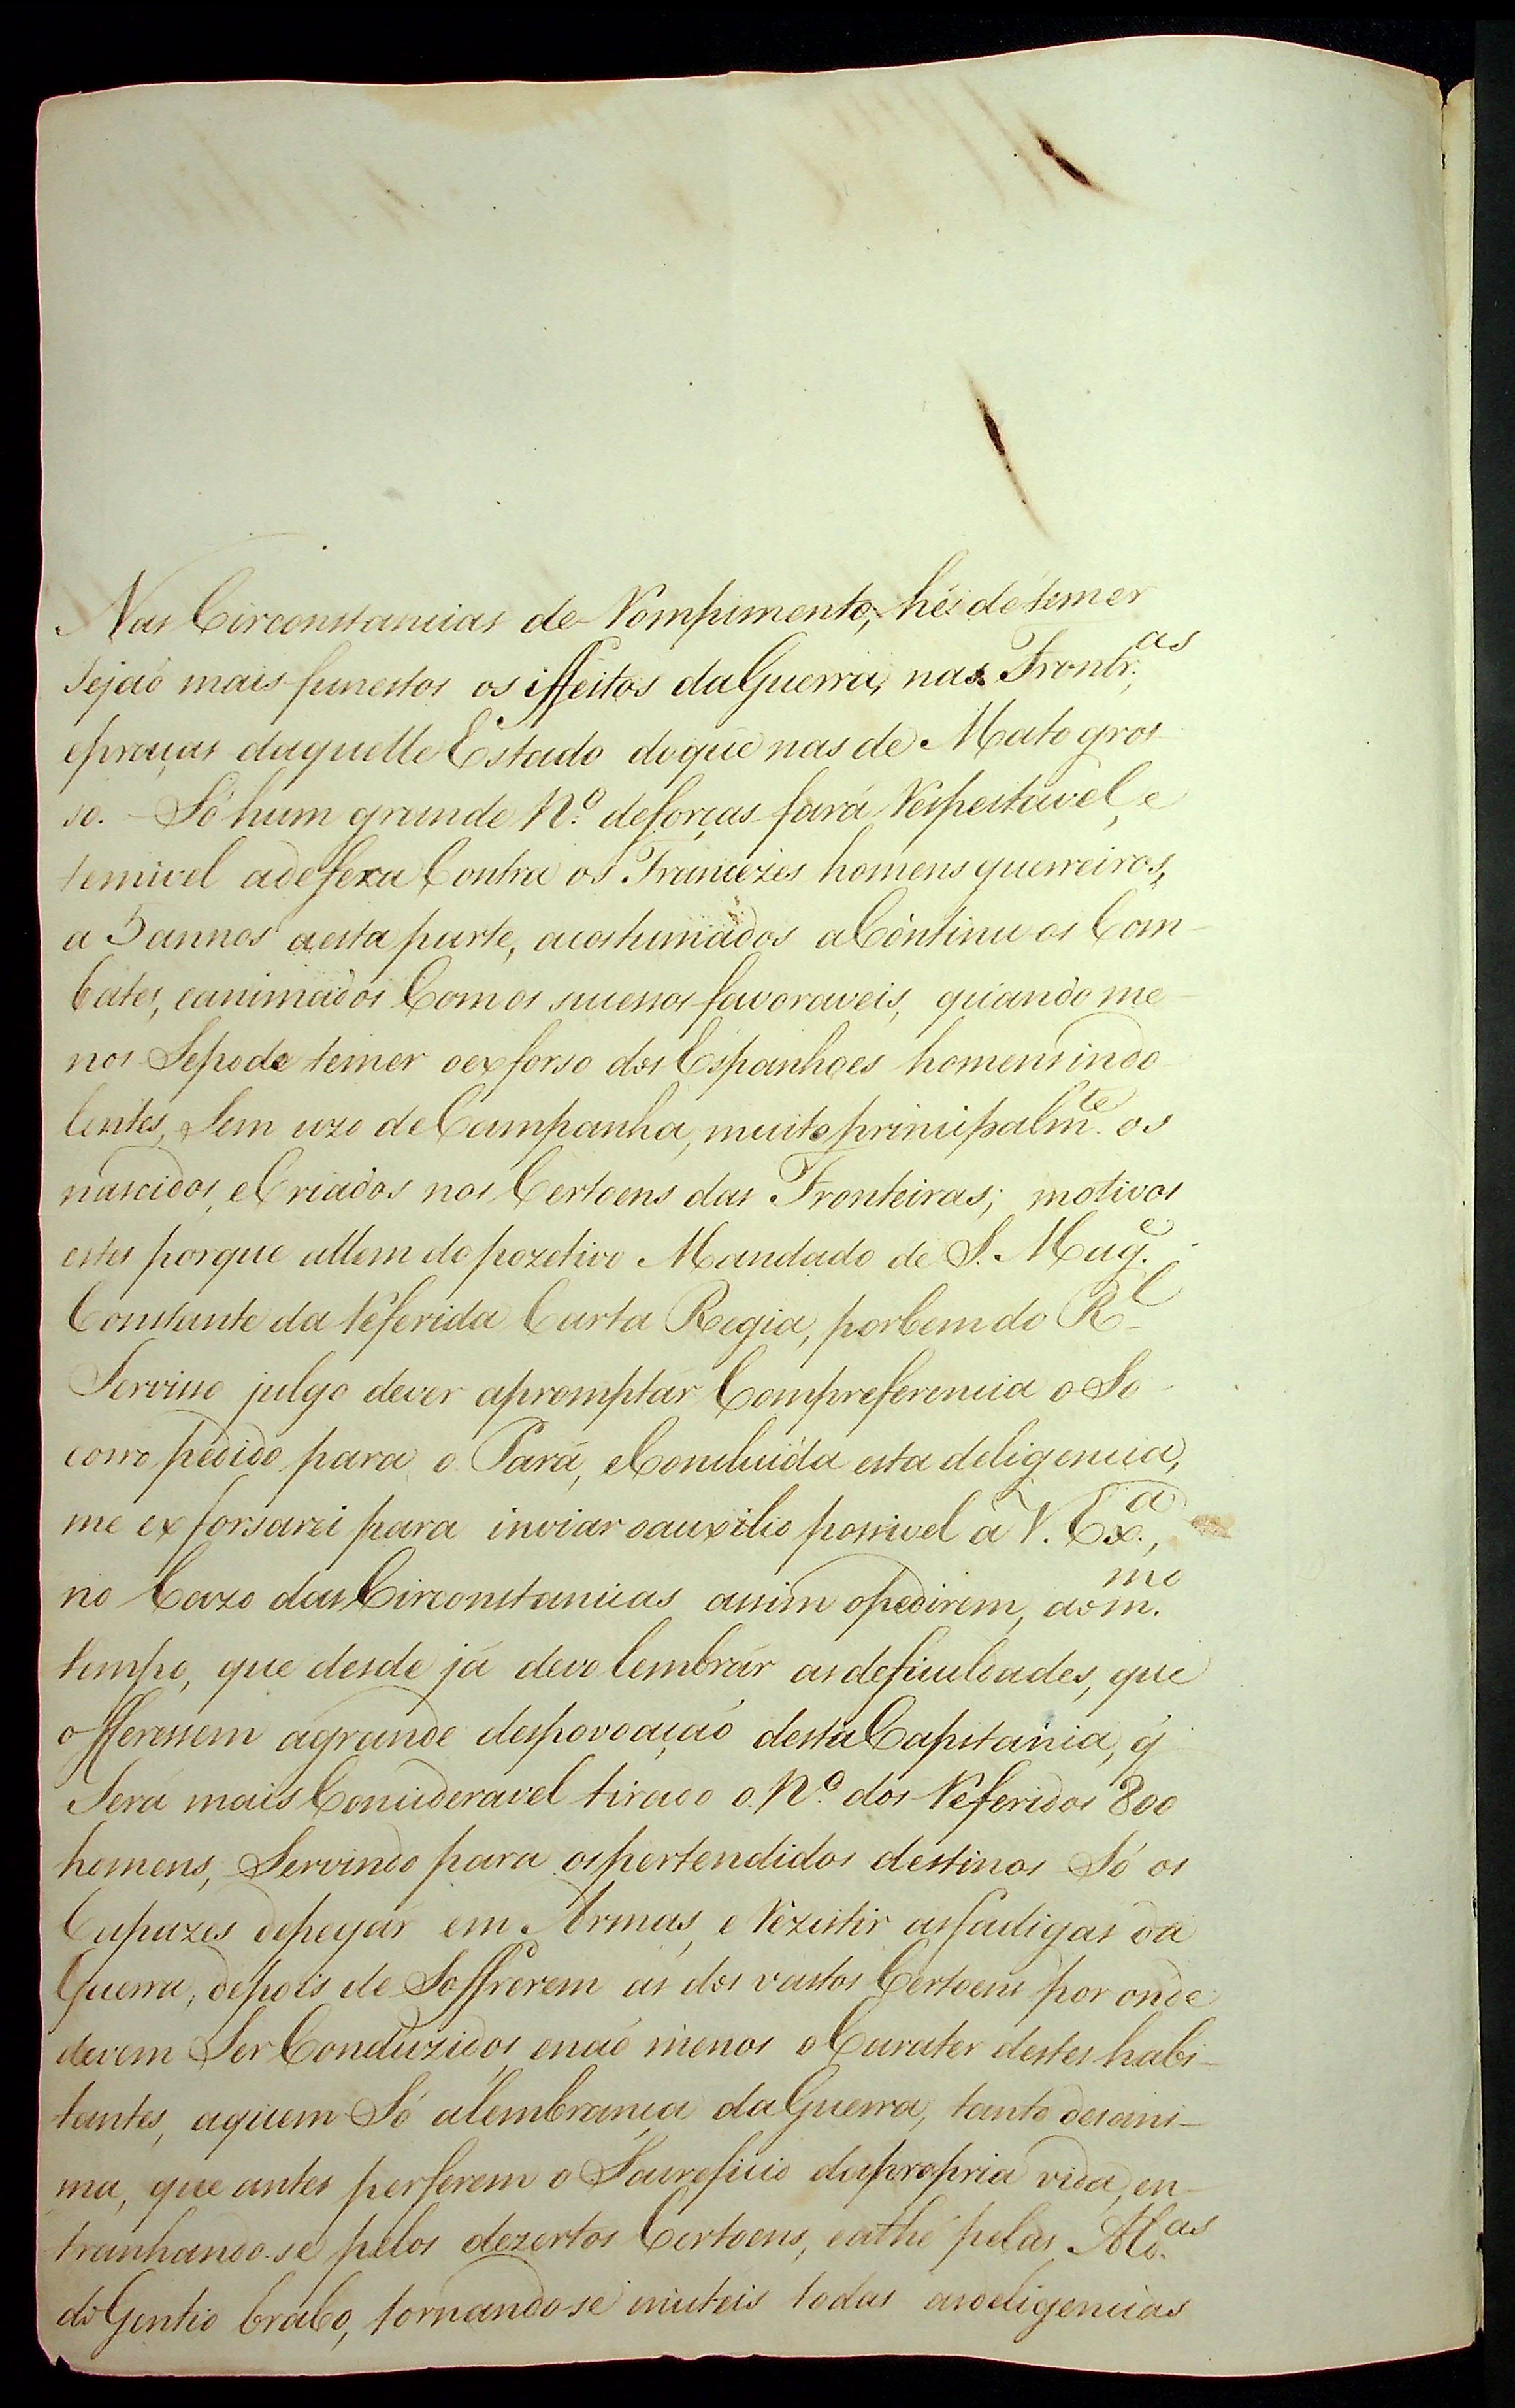 Nas Circonstancias de Rompimento, hé de temer
sejaõ mais funestos os iffeitos da Guerra, nas Frontr.as
epraças daquelle Estado doque nas de Mato gros-
so. Só hum grande N.º deforças fará Respeitavel, e
temivel adefeza Contra os Francezes homens guerreiros,
a 5 annos aesta parte, acostumados aContinuos Com-
bates, eanimados Comos sucessos favoraveis, quando me-
nos Sepode temer oexforso dos Espanhoes homens indo-
lentes, Sem uzo de Campanha, muito principalm.te os
nascidos, eCriados nos Certoens das Fronteiras; motivos
estes porque allem do pozetivo Mandado de S. Mag.e
Constante da Referida Carta Regia, porbem do R.l
Servisso julgo dever apromptár Compreferencia o So-
corro pedido para o Pará, eConcluida esta deligencia,
me exforsarei para inviar oauxilio possivel a V. Ex.a,
no Cazo das Circonstancias assim opedirem, ao m.mo
tempo, que desde já devo lembrár asdeficuldades, que
offeressem agrande despovoaçaõ desta Capitania, q̃
Será mais Consideravel tirado o N.º dos Referidos 800
homens, Servindo para ospertendidos destinos Só os
Capazes depegár em Armas, e Rezistir asfadigas da
Guerra, depois de Soffrerem as dos vastos Certoens por onde
devem Ser Conduzidos, enaõ menos oCarater destes habi-
tantes, aquem Só alembrança da Guerra, tanto desani-
ma, que antes perferem o Sacreficio dapropria vida, en-
tranhando-se pelos dezertos Certoens, eathé pelas Ald.as
do Gentio brabo, tornando-se inuteis todas asdeligencias